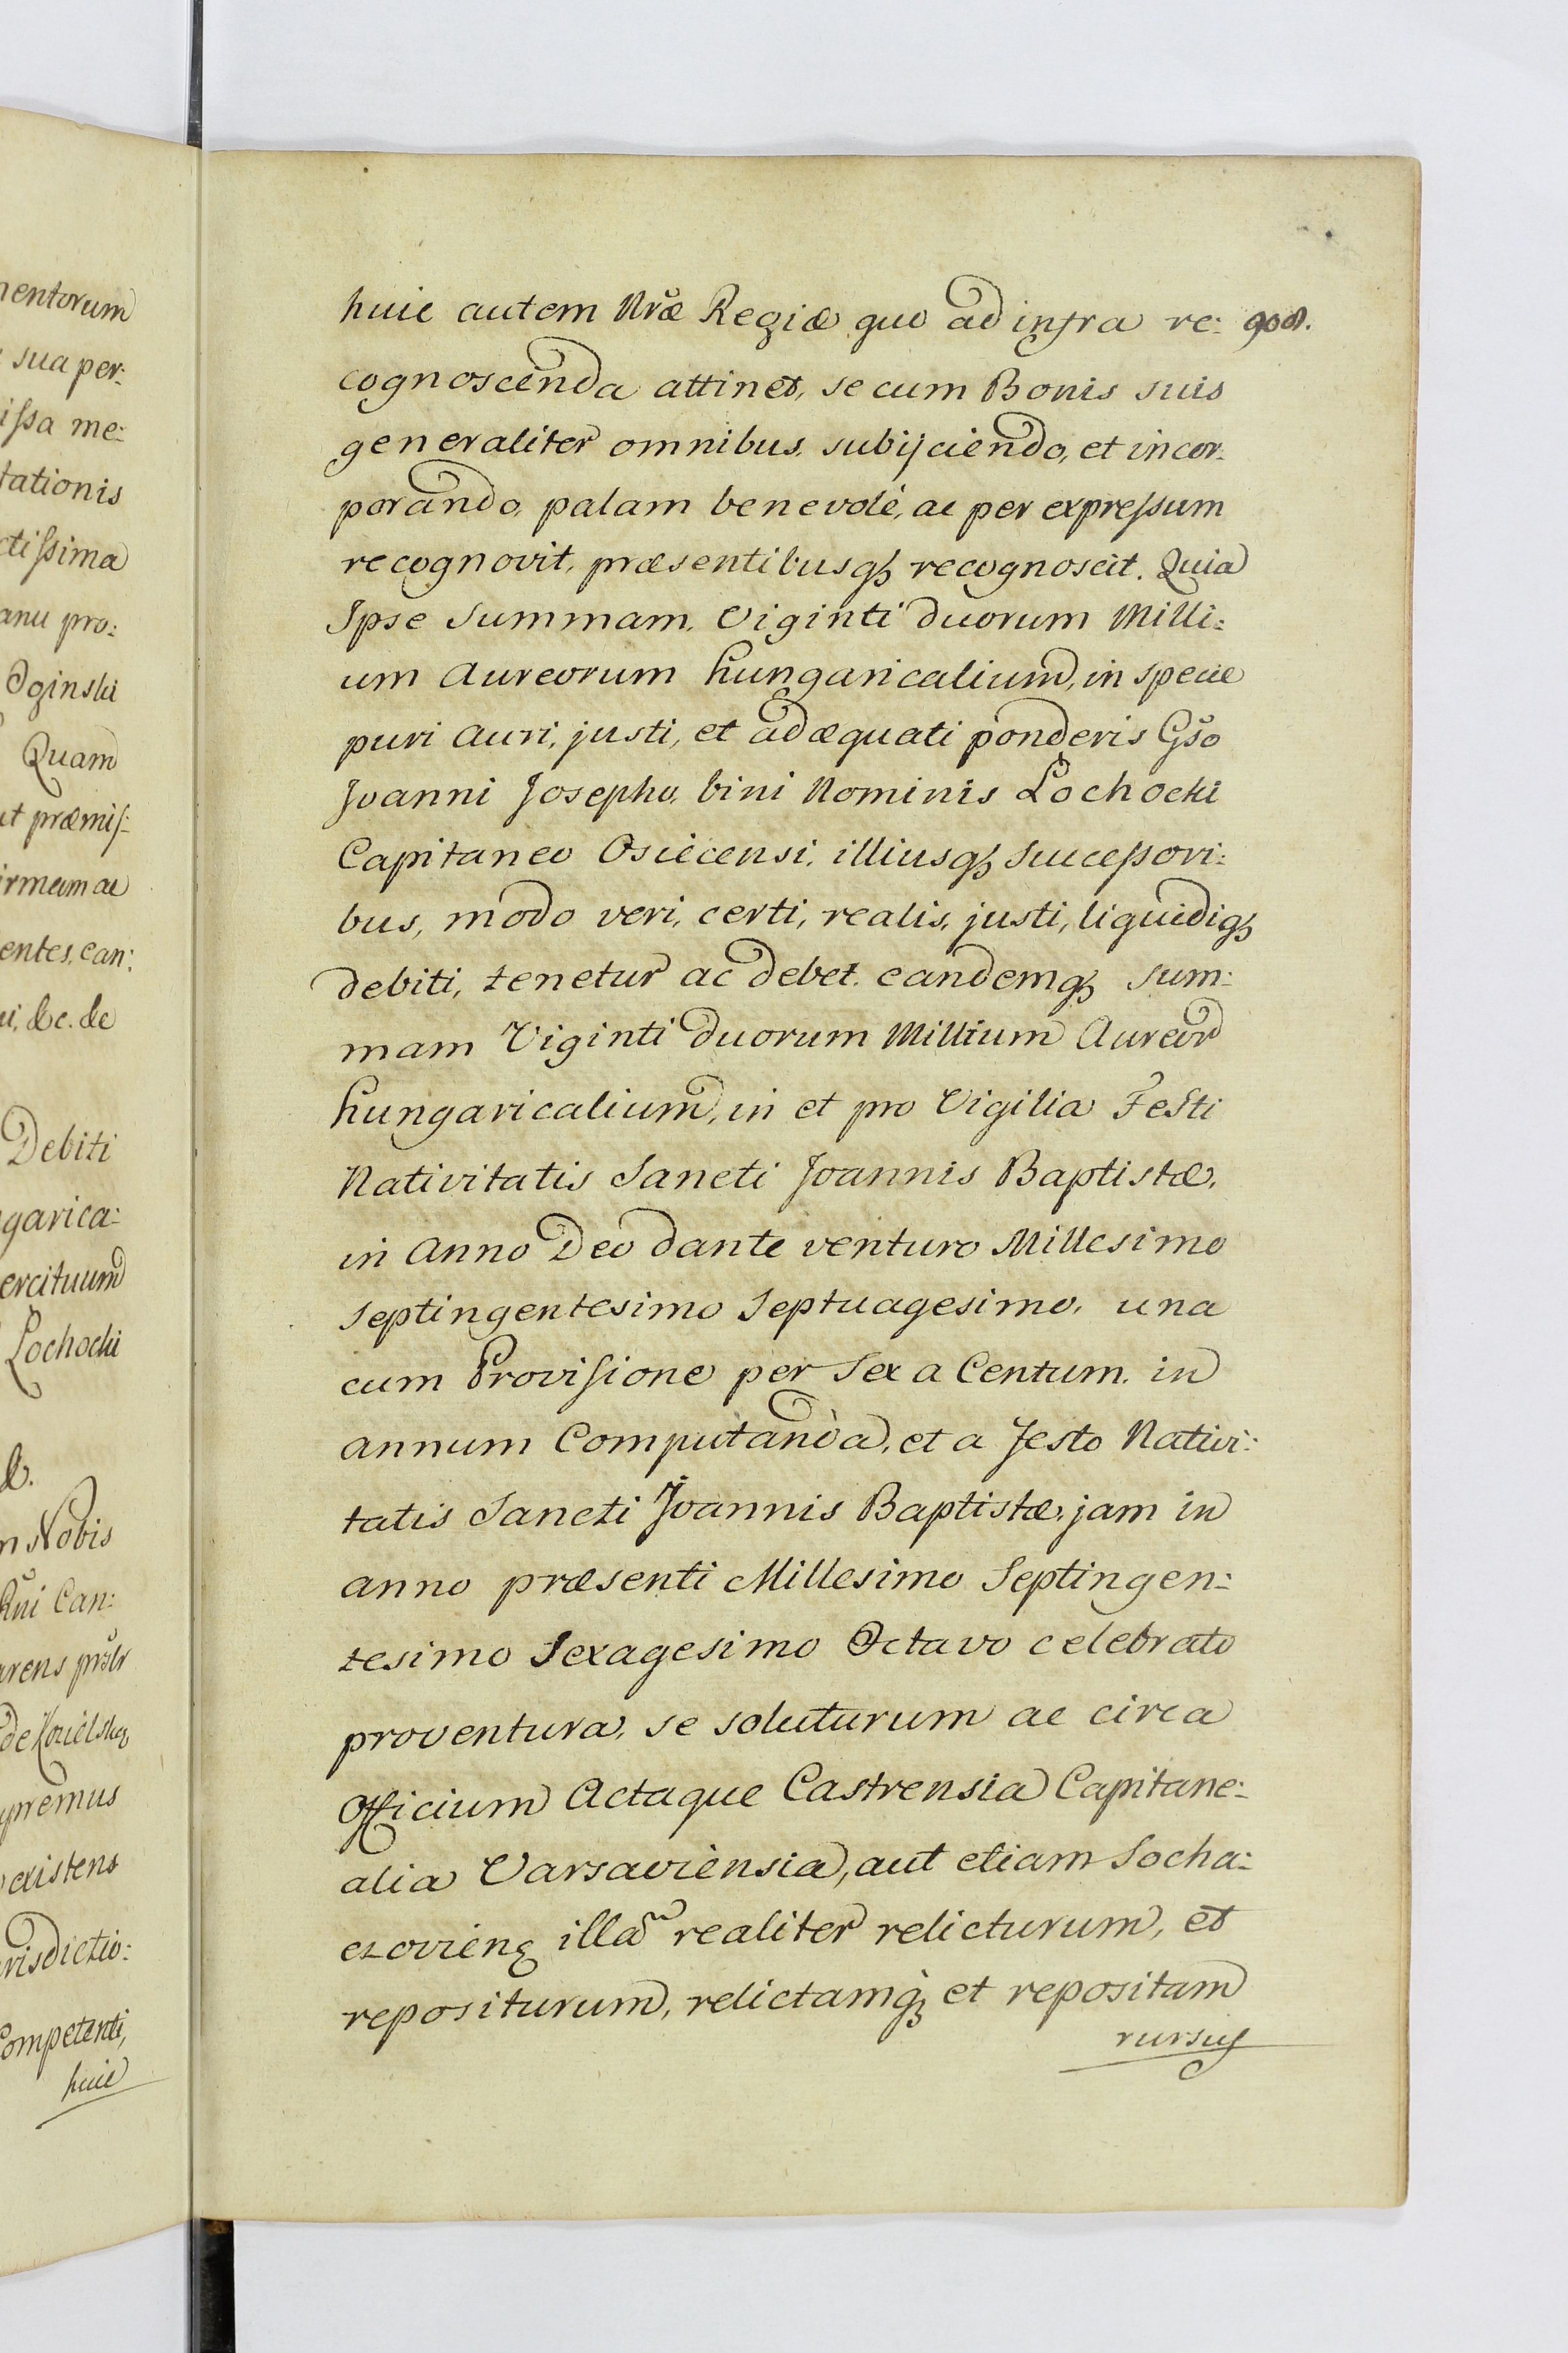 nentorum
sua per:
issa me:
tationis
ctissima
anu pro:
Oginski
Quam
ut præmis:
irmam ac
entes, can:
ui, &c. &c
Debiti
garica:
ercituum
Lochocki
&.
m Nobis
Rñi Can:
arens pñslr
de Kozielsko
upremus
existens
urisdictio:
Competenti,
huic
huic autem Nræ Regiæ quo ad infra re:
cognoscenda attinet, se cum Bonis suis
generaliter omnibus, subijciendo, et incor:
porando, palam benevolè, ac per expressum
recognovit, præsentibusq; recognoscit. Quia
Ipse Summam, Viginti duorum Milli:
um Aureorum hungaricalium, in specie
puri auri, justi, et adæquati ponderis Gso
Joanni Josepho, bini Nominis Lochocki
Capitaneo Osiecensi, illiusq; Successori:
bus, modo veri, certi, realis, justi, liquidiq;
debiti, tenetur ac debet, eandemq; sum:
mam Viginti duorum Millium Aureor
hungaricalium, in et pro Vigilia Festi
Nativitatis Sancti Joannis Baptistæ,
in Anno Deo dante venturo Millesimo
Septingentesimo Septuagesimo, una
cum Provisione per Sex a Centum, in
annum Computanda, et a festo Nativi:
tatis Sancti Joannis Baptistæ, jam in
anno præsenti Millesimo Septingen:
tesimo Sexagesimo Octavo celebrato
proventura, se soluturum ac circa
Officium Actaque Castrensia Capitane:
alia Varsaviensia, aut etiam Socha:
czovien, illã realiter relicturum, et
repositurum, relictamq; et repositam
rursus